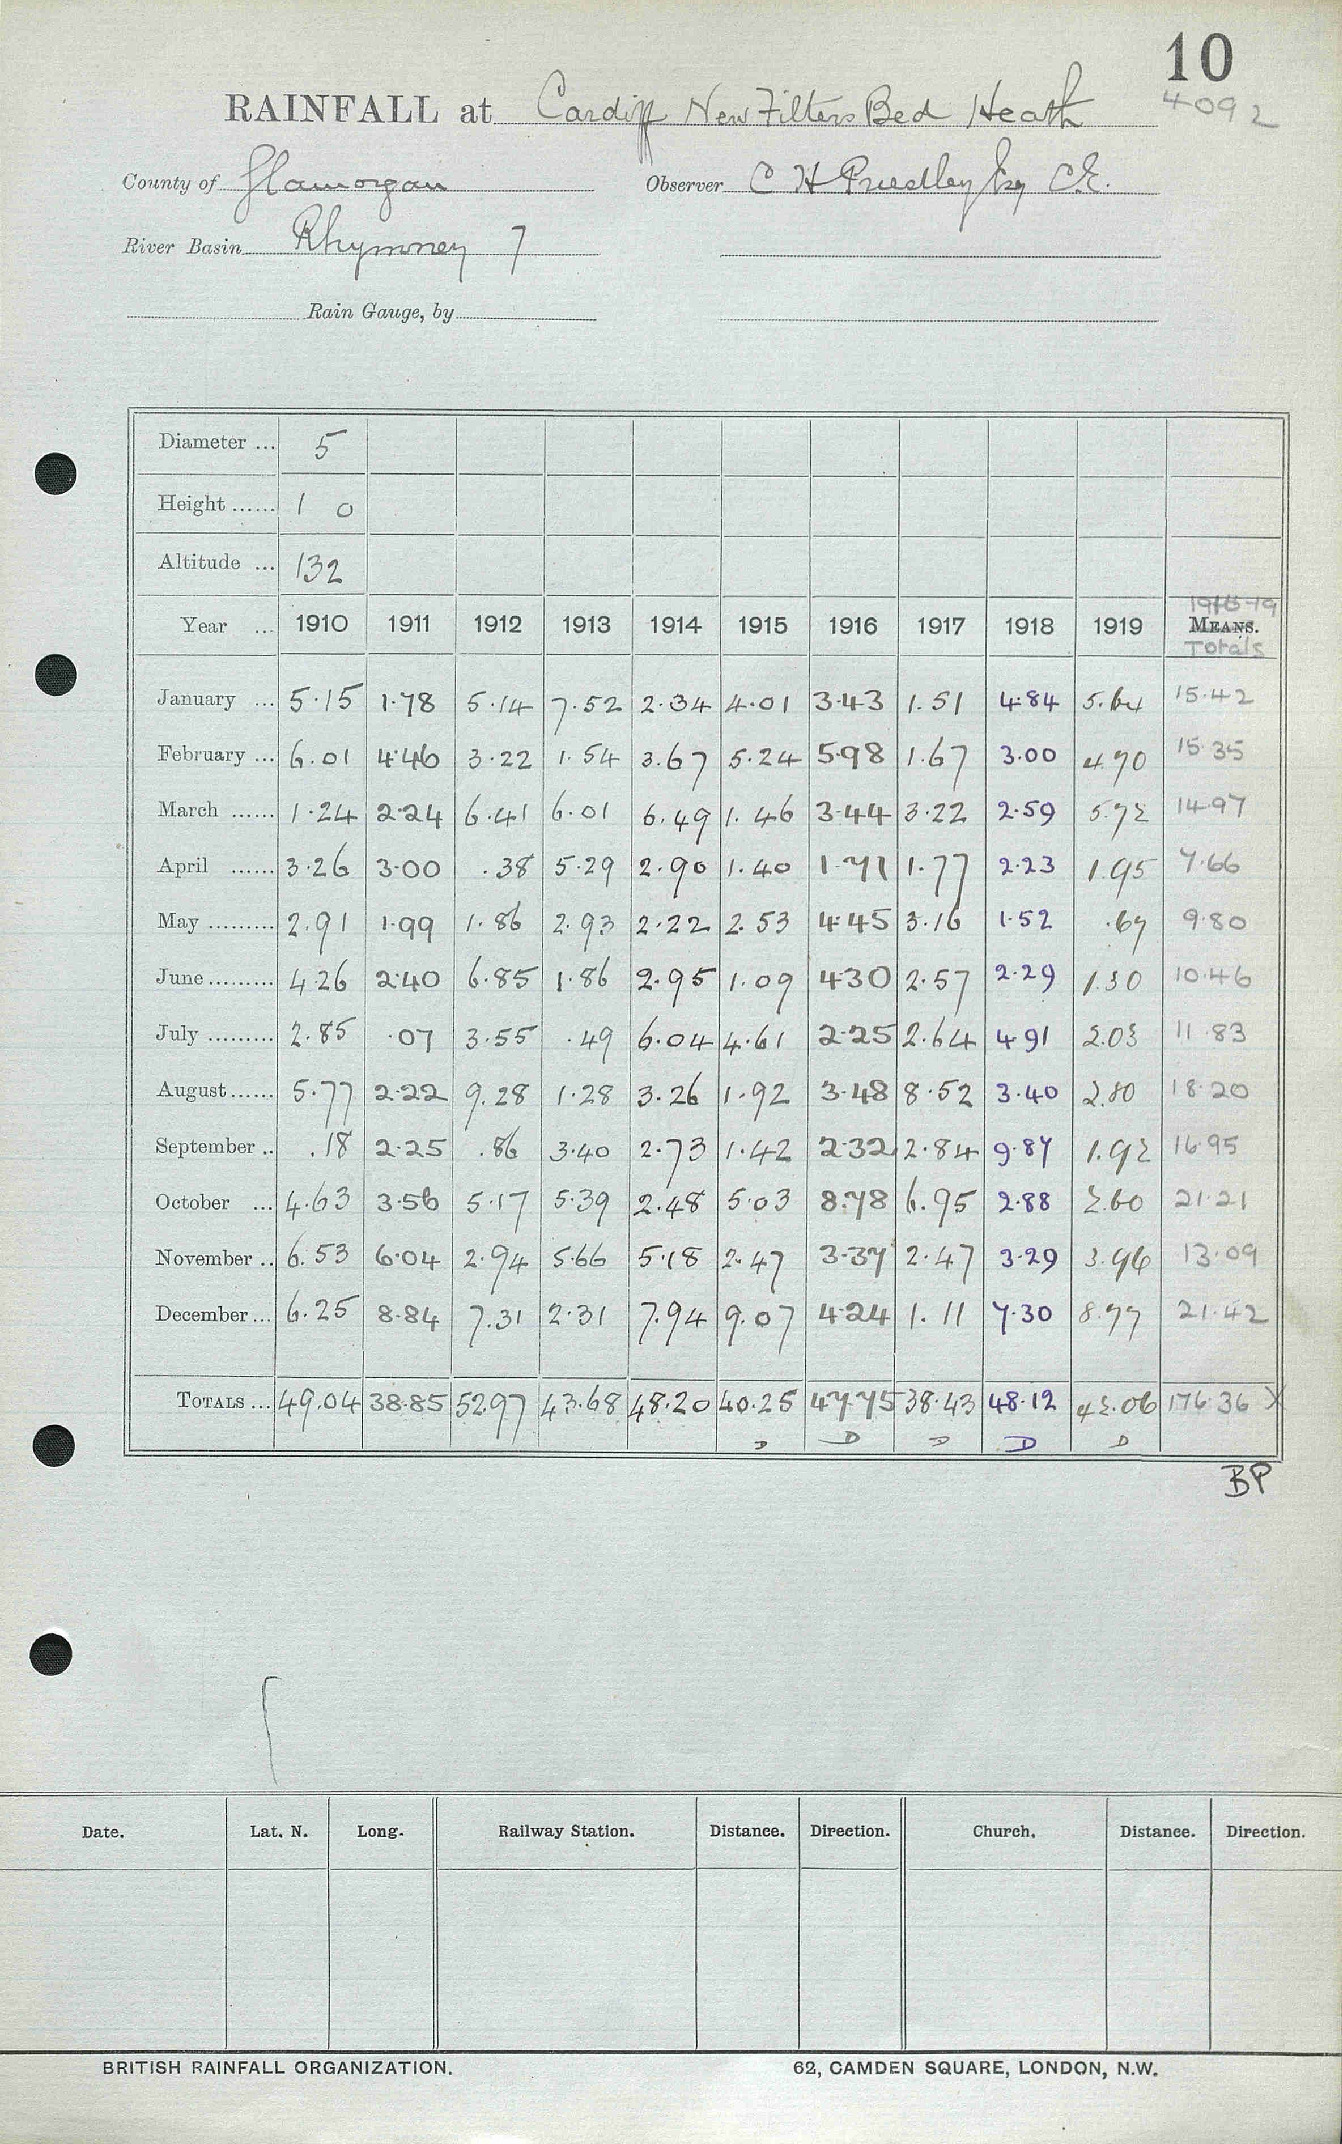 10
RAINFALL at Cardiff New Filters Bed Heath 4092
County of Glamorgan Observer C H Priestley Esq C.E.
River Basin Rhymney 7
Rain Gauge, by
Diameter ... 5
Height ...... 1 0
Altitude ... 132
1916-19
Year ... 1910 1911 1912 1913 1914 1915 1916 1917 1918 1919 MEANS.
Totals
January ... 5.15 1.78 5.14 7.52 2.34 4.01 3.43 1.51 4.84 5.64 15.42
February ... 6.01 4.46 3.22 1.54 3.67 5.24 5.98 1.67 3.00 4.70 15.35
March ...... 1.24 2.24 6.41 6.01 6.49 1.46 3.44 3.22 2.59 5.72 14.97
April ...... 3.26 3.00 .38 5.29 2.90 1.40 1.71 1.77 2.23 1.95 7.66
May ......... 2.91 1.99 1.86 2.93 2.22 2.53 4.45 3.16 1.52 .67 9.80
June ......... 4.26 2.40 6.85 1.86 2.95 1.09 4.30 2.57 2.29 1.30 10.46
July ......... 2.85 .07 3.55 .49 6.04 4.61 2.25 2.64 4.91 2.03 11.83
August ...... 5.77 2.22 9.28 1.28 3.26 1.92 3.48 8.52 3.40 2.80 18.20
September .. .18 2.25 .86 3.40 2.73 1.42 2.32 2.84 9.87 1.92 16.95
October ... 4.63 3.56 5.17 5.39 2.48 5.03 8.78 6.95 2.88 2.60 21.21
November .. 6.53 6.04 2.94 5.66 5.18 2.47 3.37 2.47 3.29 3.96 13.09
December ... 6.25 8.84 7.31 2.31 7.94 9.07 4.24 1.11 7.30 8.77 21.42
TOTALS ... 49.04 38.85 52.97 43.68 48.20 40.25 47.75 38.43 48.12 42.06 176.36 X
D D D D D
BP
Date. Lat. N. Long. Railway Station. Distance. Direction. Church. Distance. Direction.
BRITISH RAINFALL ORGANIZATION. 62, CAMDEN SQUARE, LONDON, N.W.